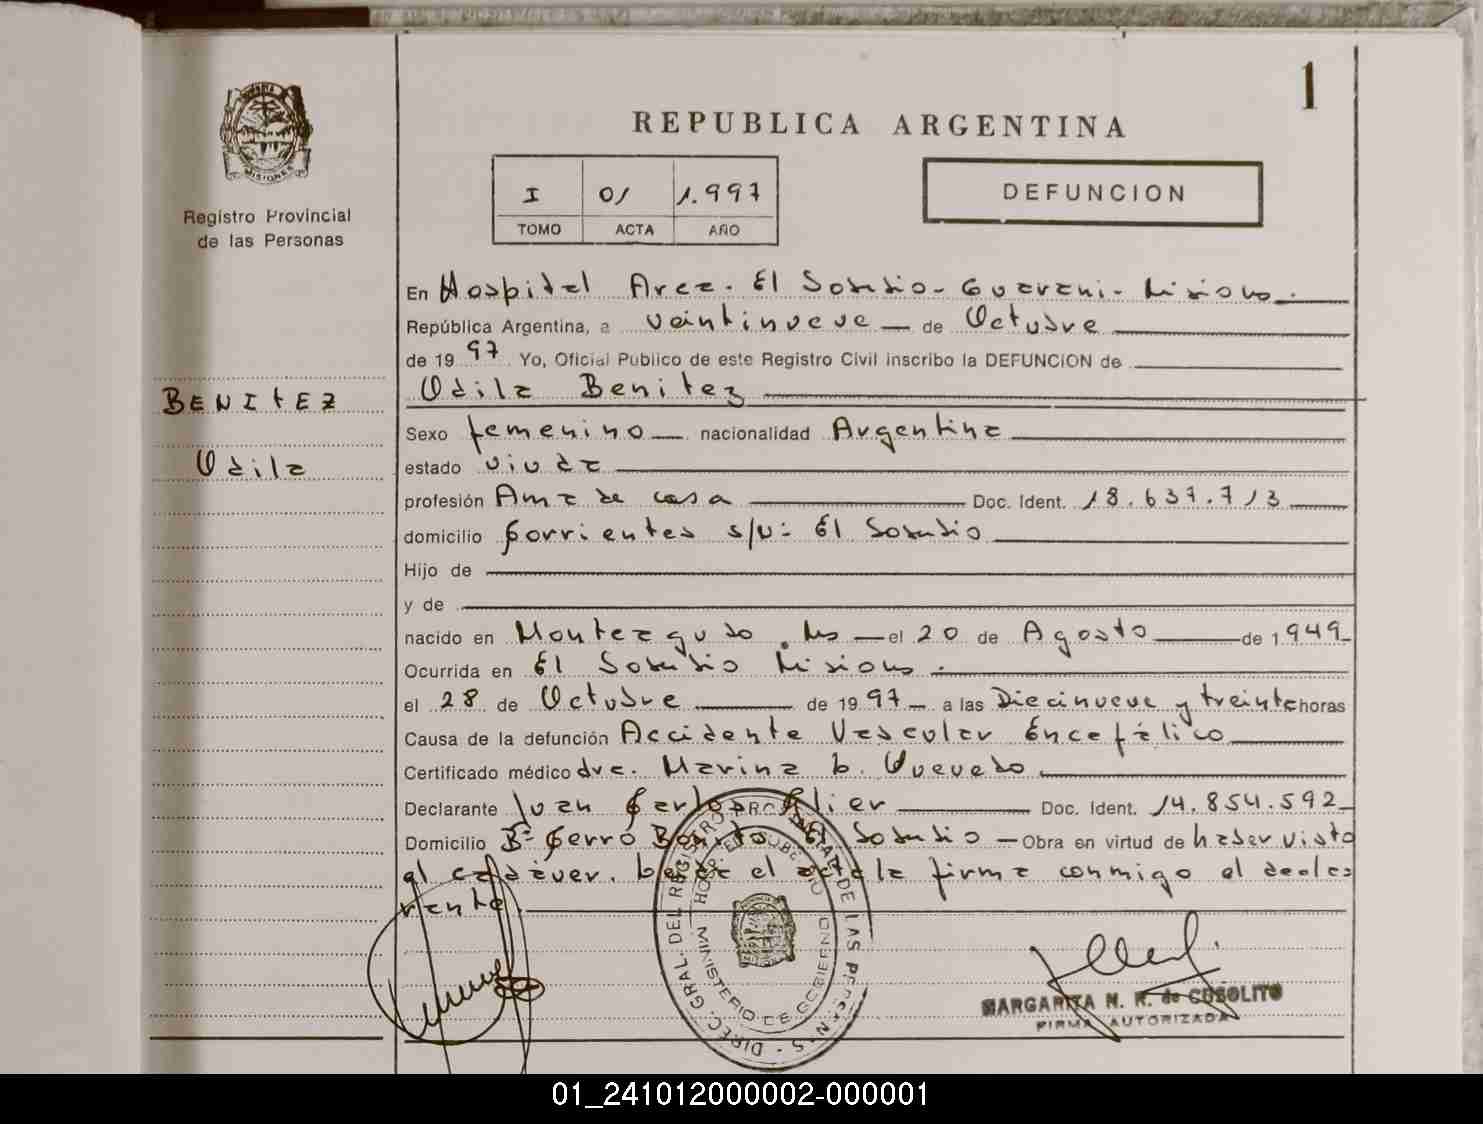 1
MISIONES
Registro Provincial
de las Personas
REPUBLICA ARGENTINA
I 01 1.997
TOMO ACTA AÑO
DEFUNCION
En Hospital Area. El Soberbio - Guarani - Misiones.
República Argentina, a veintinueve de Octubre
de 19 97. Yo, Oficial Publico de este Registro Civil inscribo la DEFUNCION de
Odila Benitez
BENITEZ
Odila
Sexo femenino nacionalidad Argentina
estado viuda
profesión Ama de casa Doc. Ident. 18.637.713
domicilio Corrientes s/n: El Soberbio
Hijo de
y de
nacido en Monteagudo. Ms el 20 de Agosto de 1.949
Ocurrida en El Soberbio Misiones.
el 28 de Octubre de 19 97 a las Diecinueve y treinta horas
Causa de la defunción Accidente Vascular Encefálico
Certificado médico dra. Marina b. Quevedo
Declarante Juan Carlos Doc. Ident. 14.854.592
Domicilio Bº Cerro Bonito El Soberbio Obra en virtud de haber visto
el cadáver. Leída el acta la firma conmigo el decla
rante.
DIREC. GRAL. DEL REGISTRO PROVINCIAL DE LAS PERSONAS
MINISTERIO DE GOBIERNO
MARGARITA N. R. de CUSOLITO
FIRMA AUTORIZADA
01_241012000002-000001